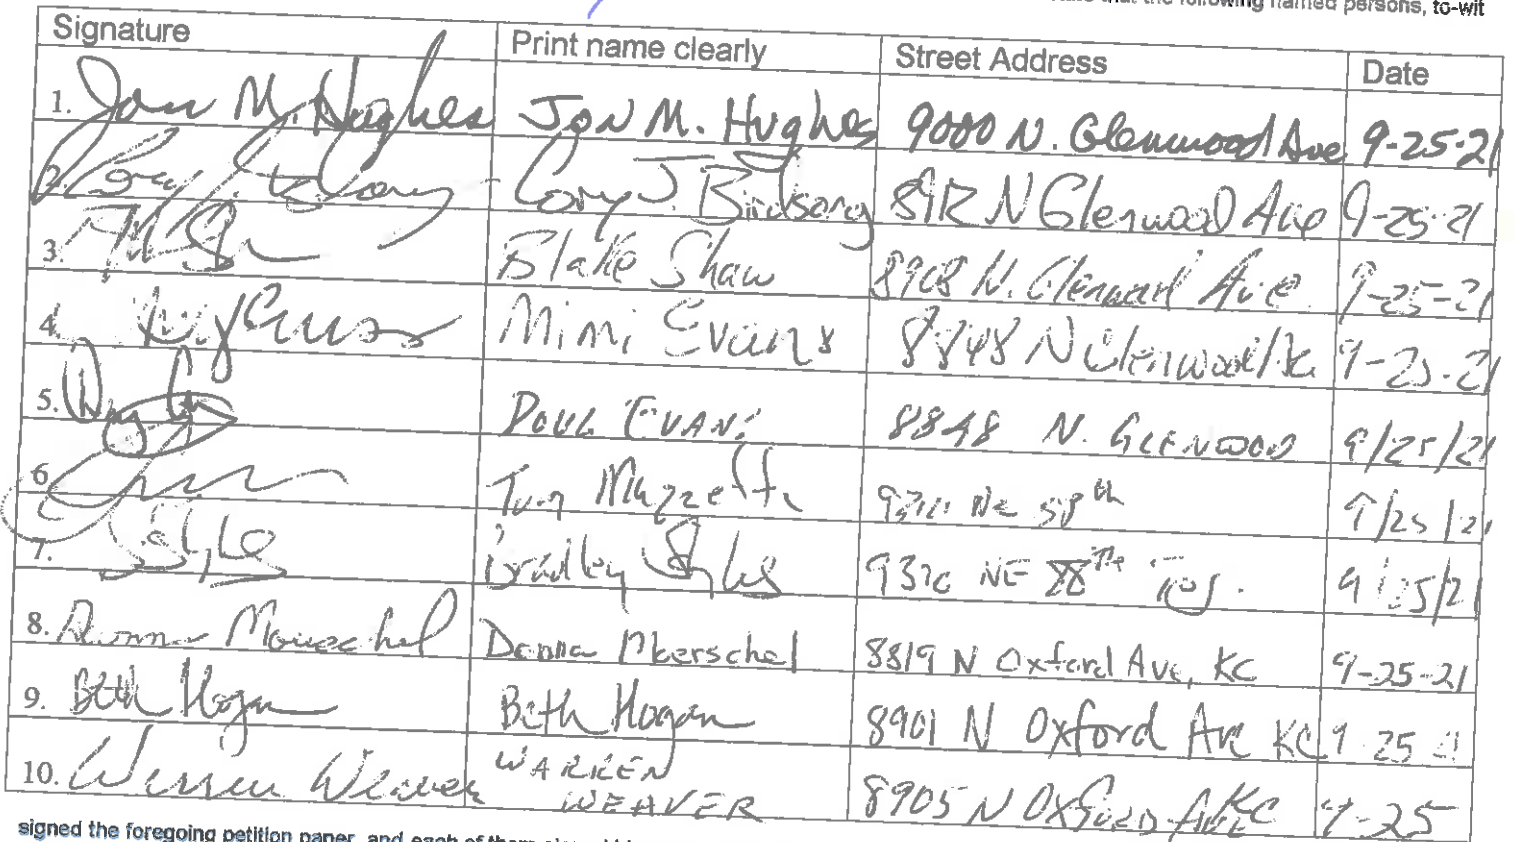 the following named persons, to-wit
Signature Print name clearly Street Address Date
1. Jon M. Hughes Jon M. Hughes 9000 N. Glenwood Ave 9-25-21
2. Cory J. Birdsong 8912 N Glenwood Ave 9-25-21
3. Blake Shaw 8908 N. Glenwood Ave. 9-25-21
4. Mimi Evans 8848 N Glenwood 9-25-21
5. DOUG EVANS 8848 N. GLENWOOD 9/25/21
6 Mazzeffe NE 88th 9/25/21
7. Bradley Styles NE 88th 9/25/21
8. Donna Moerschel Donna Moerschel 8819 N Oxford Ave, KC 9-25-21
9. Beth Hogan Beth Hogan 8901 N Oxford Ave KC 9 25 21
10. Warren Weaver WARREN WEAVER 8905 N OXFORD AVE KC 9-25
signed the foregoing petition paper, and each of them